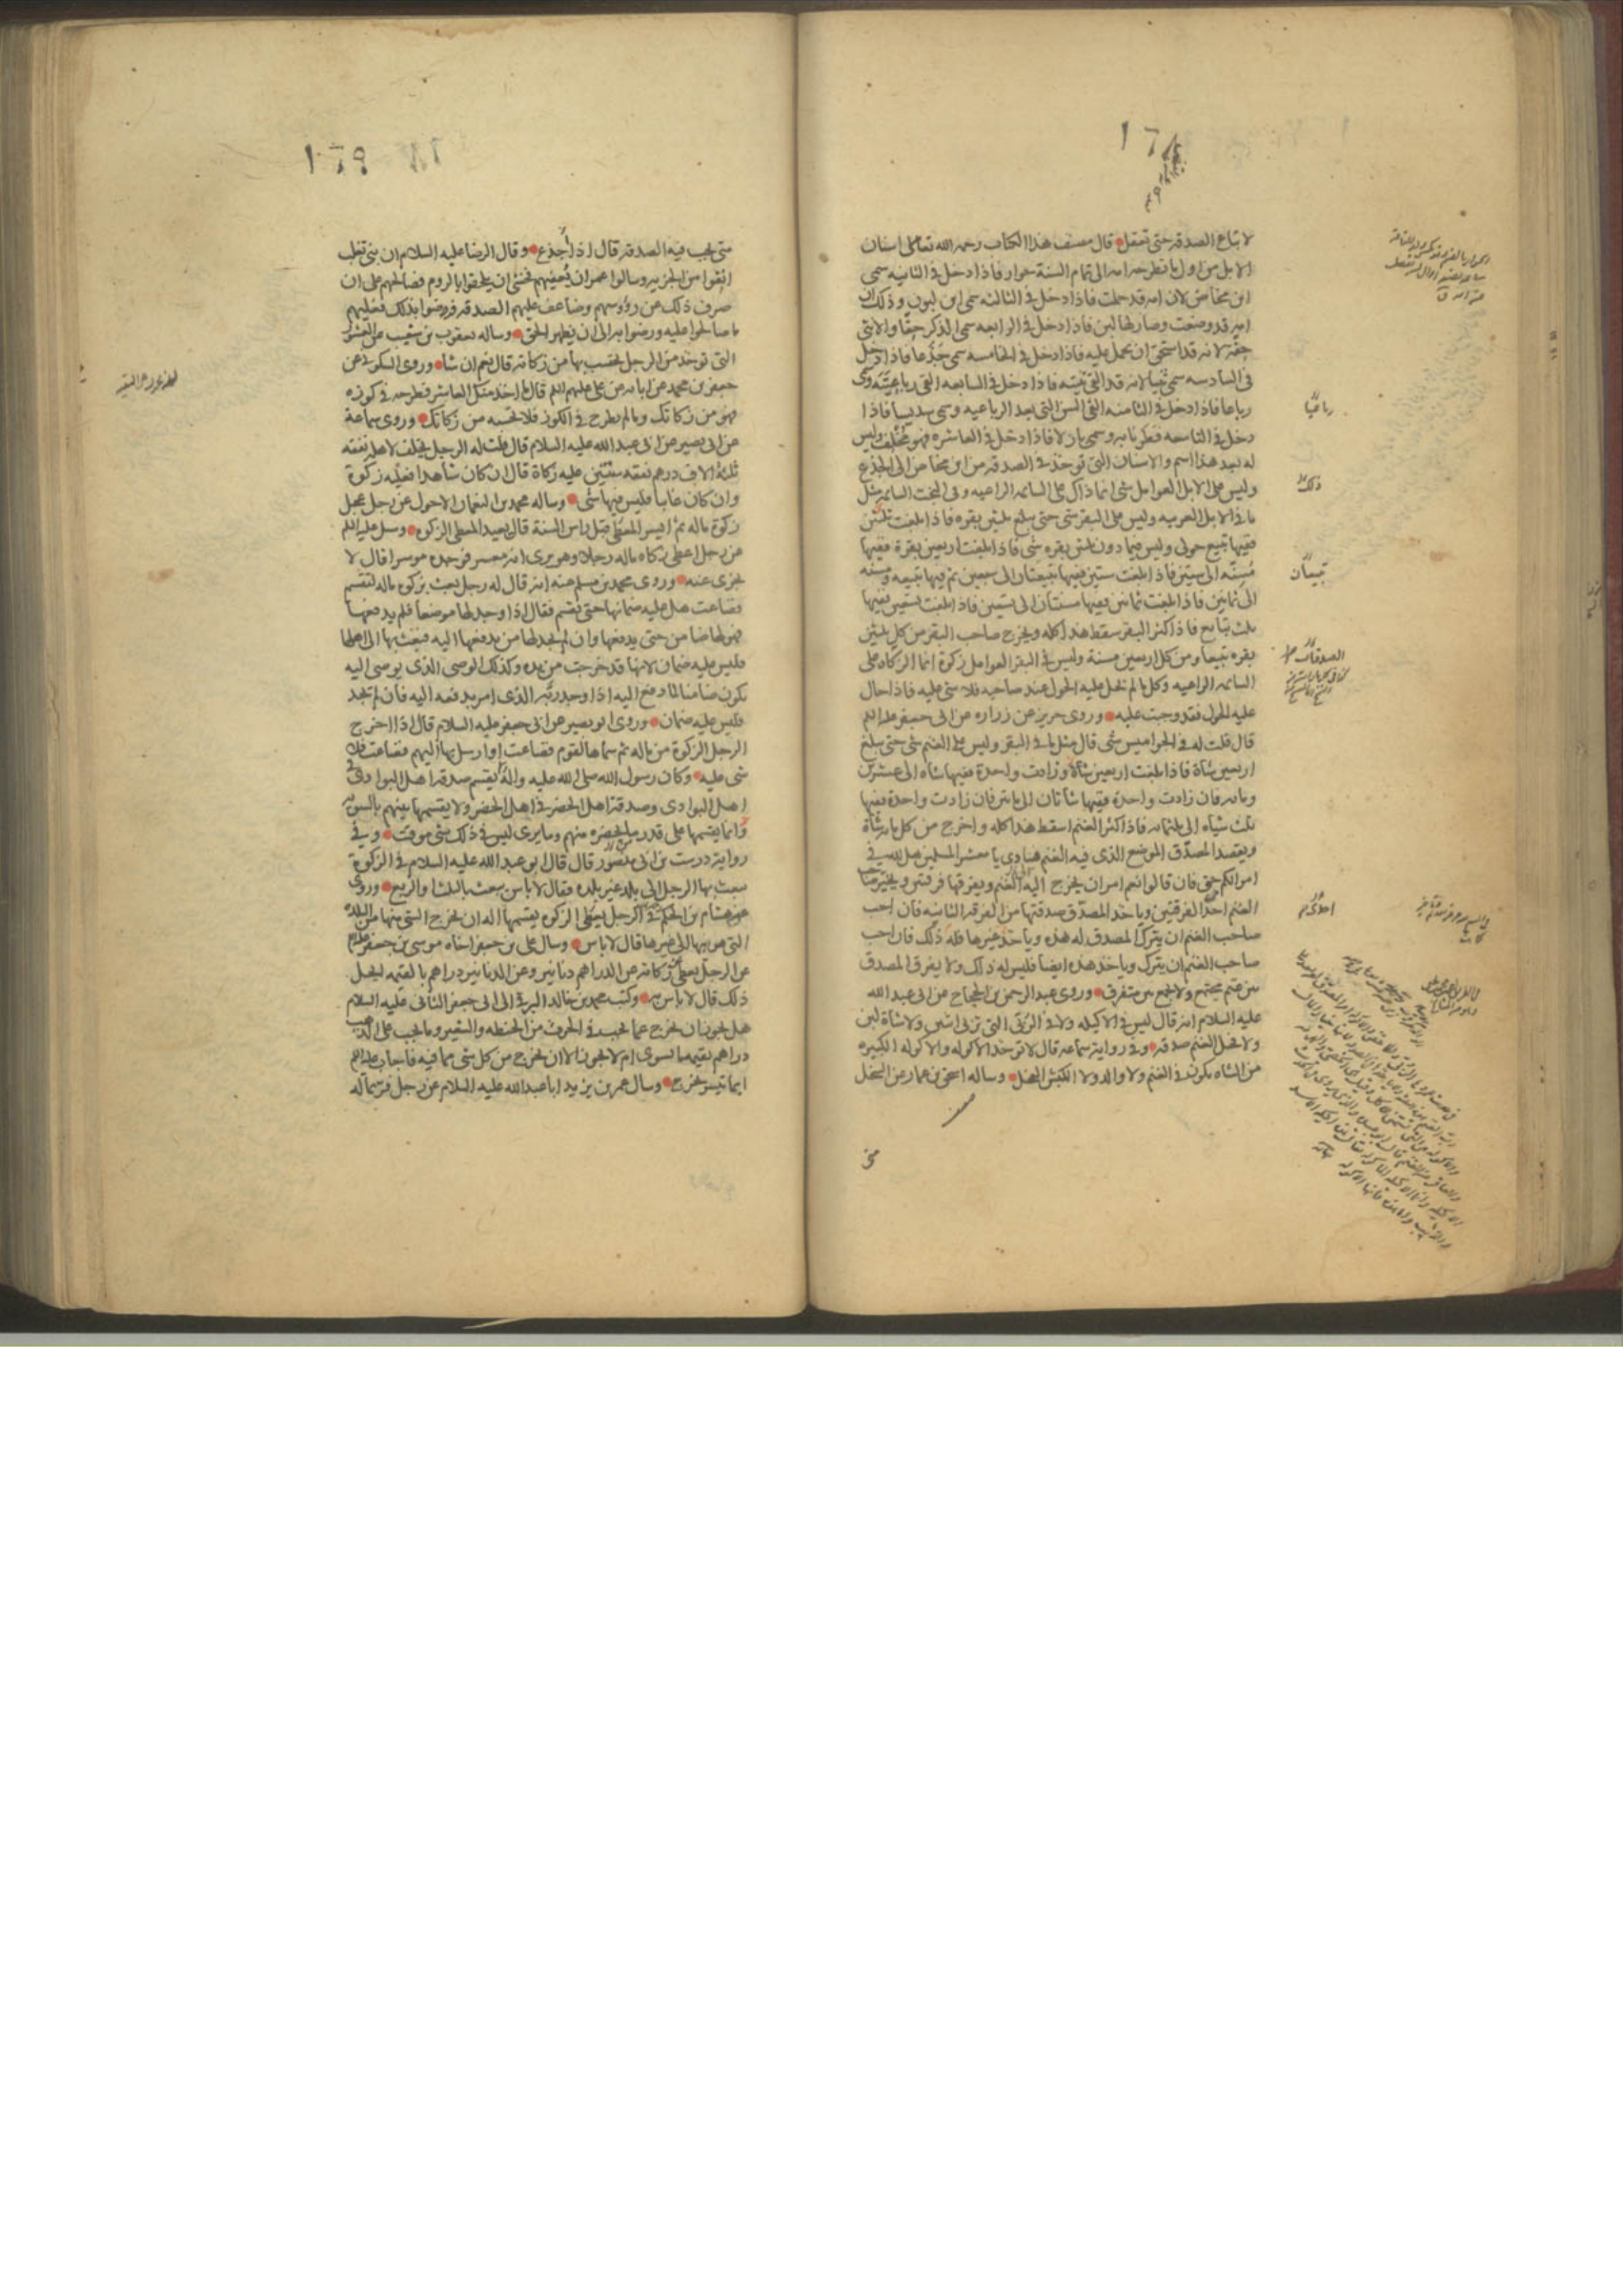 لا تباع الصدقة حتى تعقل قال مصنف هذا الكتاب رحمه الله تعالى اسنان
الابل من اول ما تطرحه امه الى تمام السنة حوار فاذا دخل في الثانيه سمى
ابن مخاض لان امه قد حملت فاذا دخل في الثالثه سمى ابن لبون وذلك ان
امه قد وضعت وصار لها لبن فاذا دخل في الرابعه سمى الذكر حقا والانثى
حقه لانه قد استحق ان يحمل عليه فاذا دخل في الخامسه سمى جذعا فاذا دخل
في السادسه سمى ثنيا لانه قد القى ثنيته فاذا دخل في السابعه القى رباعيته وسمى
رباعا فاذا دخل في الثامنه القى السن التي بعد الرباعيه وسمى سديسا فاذا
دخل في التاسعه فطر نابه وسمى بازلا فاذا دخل في العاشره فهو مخلف وليس
له بعد هذا اسم والاسنان التي توخذ في الصدقه من ابن مخاض الى الجذع
وليس على الابل العوامل شي انما ذاك على السائمه الراعيه وفي البخت السائمه مثل
ما في الابل العربيه وليس على البقر شي حتى يبلغ ثلثين بقره فاذا بلغت ثلثين
ففيها تبيع حولى وليس فيما دون ثلثين بقره شي فاذا بلغت اربعين بقرة ففيها
مسنه الى ستين فاذا بلغت ستين ففيها تبيعتان الى سبعين ثم فيها تبيعه ومسنه
الى ثمانين فاذا بلغت ثمانين ففيها مسنتان الى تسعين فاذا بلغت تسعين ففيها
ثلث تبايع فاذا كثر البقر سقط هذا كله ويخرج صاحب البقر من كل ثلثين
بقره تبيعا ومن كل اربعين مسنة وليس في البقر العوامل زكوة انما الزكاه على
السائمه الراعيه وكل ما لم يحل عليه الحول عند صاحبه فلا شي عليه فاذا حال
عليه الحول فقد وجبت عليه وروى حريز عن زراره عن ابي جعفر عليه السلم
قال قلت له في الجواميس شي قال مثل ما في البقر وليس على الغنم شي حتى يبلغ
اربعين شاة فاذا بلغت اربعين شاة وزادت واحدة ففيها شاه الى عشرين
ومايه فان زادت واحدة ففيها شاتان الى مايتين فان زادت واحدة ففيها
ثلث شياه الى ثلثمايه فاذا كثر الغنم اسقط هذا كله واخرج من كل مايه شاة
ويقصد المصدق الموضع الذي فيه الغنم فينادي يا معشر المسلمين هل لله في
اموالكم حق فان قالوا نعم امر ان يخرج اليه الغنم ويفرقها فرقتين ويخير صاحب
الغنم احد الفرقتين وياخذ المصدق صدقتها من الفرقه الثانيه فان احب
صاحب الغنم ان يترك المصدق له هذه وياخذ غيرها فله ذلك فان احب
صاحب الغنم ان يترك وياخذ هذه ايضا فليس له ذلك ولا يفرق المصدق
بين غنم مجتمع ولا يجمع بين متفرق وروى عبد الرحمن بن الحجاج عن ابي عبد الله
عليه السلام انه قال ليس في الاكيله ولا في الربى التي تربى اثنين ولا شاة لبن
ولا فحل الغنم صدقه وفي رواية سماعه قال لا توخذ الاكوله والاكوله الكبيره
من الشاه يكون في الغنم ولا والد ولا الكبش الفحل وساله اسحق بن عمار عن السخل
متى
رباعيا
ذلك
تبيعان
الصدقات
احدى
١٦٩
متى يجب فيه الصدقه قال اذا اجذع وقال الرضا عليه السلام ان بنى تغلب
انفوا من الجزيه وسالوا عمر ان يعفيهم فخشي ان يلحقوا بالروم فصالحهم على ان
صرف ذلك عن رؤوسهم وضاعف عليهم الصدقه فرضوا بذلك فعليهم
ما صالحوا عليه ورضوا به الى ان يظهر الحق وساله يعقوب بن شعيب عن العشور
التي توخذ من الرجل يحتسب بها من زكاته قال نعم ان شاء وروى السكوني عن
جعفر بن محمد عن ابائه عن علي عليهم السلم قال ما اخذ منك العاشر فطرحه في كوزه
فهو من زكاتك وما لم يطرح في الكوز فلا تحسبه من زكاتك وروى سماعة
عن ابي بصير عن ابي عبد الله عليه السلام قال قلت له الرجل يخلف لاهله نفقه
ثلثة الاف درهم نفقه سنتين عليه زكاة قال ان كان شاهدا فعليه زكوة
وان كان غايبا فليس فيها شي وساله محمد بن النعمان الاحول عن رجل عجل
زكوة ماله ثم ايسر المعطى قبل راس السنة قال يعيد المعطى الزكوه وسئل عليه السلم
عن رجل اعطى زكاه ماله رجلا وهو يرى انه معسر فوجده موسرا قال لا
يجزى عنه وروى محمد بن مسلم عنه انه قال له رجل بعث بزكوه ماله لتقسم
فضاعت هل عليه ضمانها حتى تقسم فقال اذا وجد لها موضعا فلم يدفعها
فهو لها ضامن حتى يدفعها وان لم يجد لها من يدفعها اليه فبعث بها الى اهلها
فليس عليه ضمان لانها قد خرجت من يده وكذلك الوصى الذي يوصى اليه
يكون ضامنا لما دفع اليه اذا وجد ربه الذي امر بدفعه اليه فان لم يجد
فليس عليه ضمان وروى ابو بصير عن ابي جعفر عليه السلام قال اذا اخرج
الرجل الزكوة من ماله ثم سماها لقوم فضاعت او ارسل بها اليهم فضاعت فلا
شي عليه وكان رسول الله صلى الله عليه واله يقسم صدقه اهل البوادى في
اهل البوادى وصدقة اهل الحضر في اهل الحضر ولا يقسمها بينهم بالسويه
وانما يقسمها على قدر ما يحضره منهم وما يرى ليس في ذلك شي موقت وفي
رواية درست بن ابي منصور قال قال ابو عبد الله عليه السلام في الزكوة
يبعث بها الرجل الى بلد غير بلده فقال لا باس يبعث بالثلث او الربع وروى
عن هشام بن الحكم في الرجل يعطى الزكوه يقسمها اله ان يخرج الشي منها من البلده
التي هو بها الى غيرها قال لا باس وسال علي بن جعفر اخاه موسى بن جعفر عليهما السلم
عن الرجل يعطى زكاته عن الدراهم دنانير وعن الدنانير دراهم بالقيمه ايحل
ذلك قال لا باس به وكتب محمد بن خالد البرقي الى ابي جعفر الثاني عليه السلام
هل يجوز ان يخرج عما يجب في الحرث من الحنطه والشعير وما يجب على الذهب
دراهم بقيمه ما يسوى ام لا يجوز الا ان يخرج من كل شي مما فيه فاجاب عليه السلم
ايما تيسر يخرج وسال عمر بن يزيد ابا عبد الله عليه السلام عن رجل فر بماله